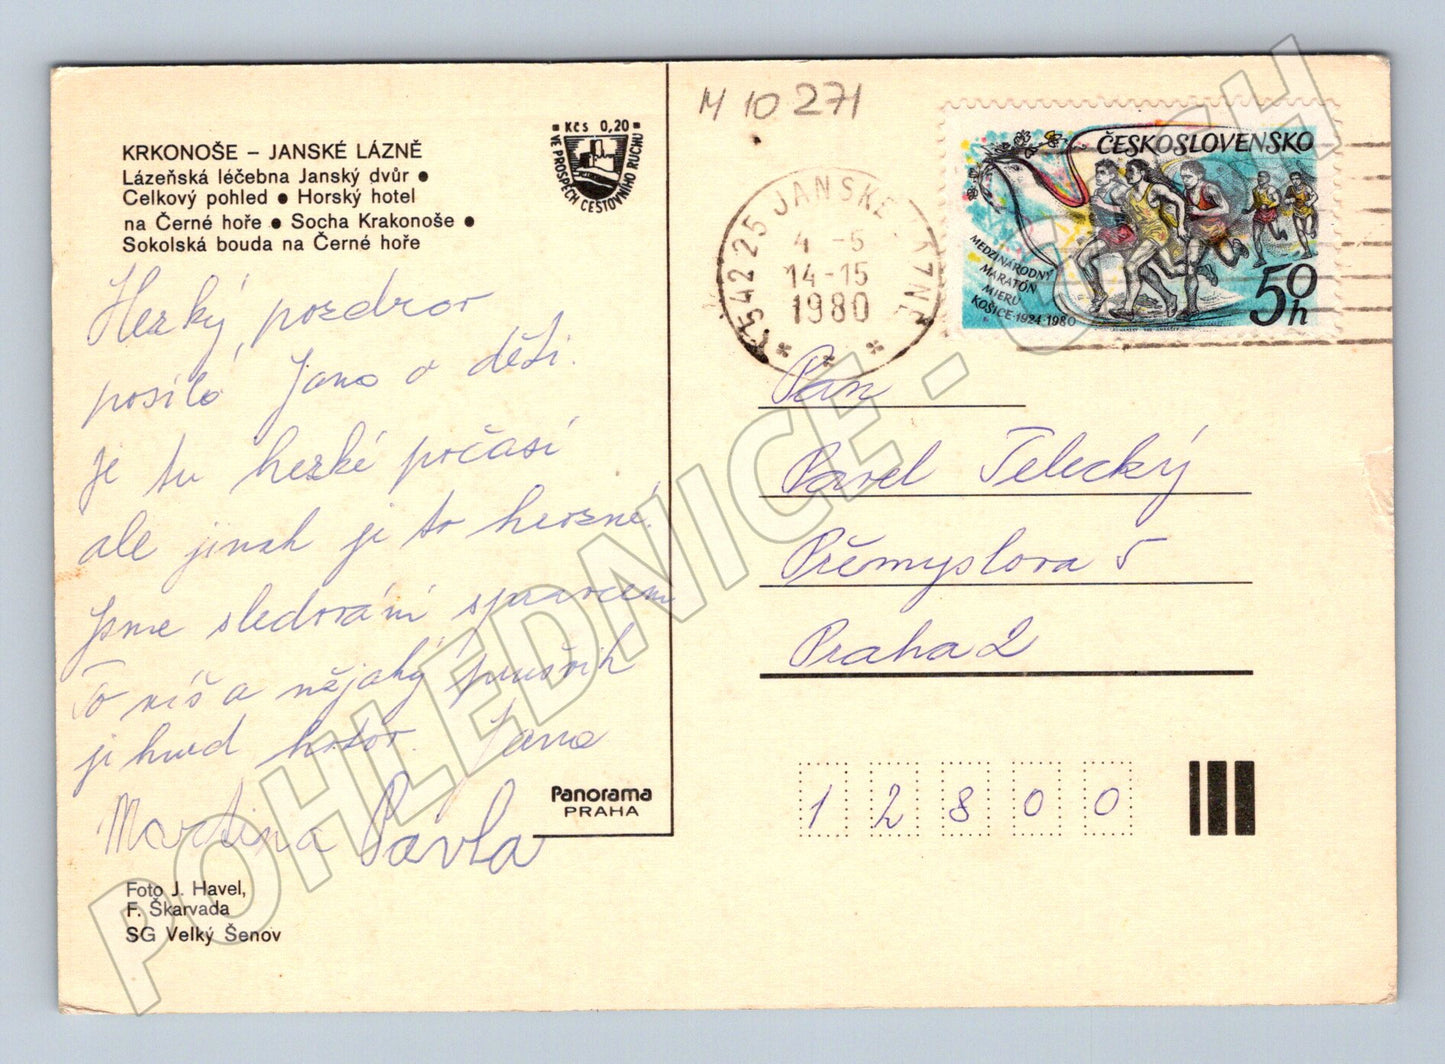 KRKONOŠE – JANSKÉ LÁZNĚ
Lázeňská léčebna Janský dvůr ●
Celkový pohled ● Horský hotel
na Černé hoře ● Socha Krakonoše ●
Sokolská bouda na Černé hoře
Kčs 0,20
VE PROSPĚCH CESTOVNÍHO RUCHU
Hezký pozdrav
posílá Jana a děti.
Je tu hezké počasí
ale jinak je to hrozné.
Jsme sledováni správcem
To víš a nějaký průšvih
je hned hotov. Jana
Martina Pavla
Panorama
PRAHA
Foto J. Havel,
F. Škarvada
SG Velký Šenov
M 10 271
54225 JANSKÉ LÁZNĚ
4 -5
14-15
1980
ČESKOSLOVENSKO
MEDZINÁRODNÝ
MARATÓN
MIERU
KOŠICE·1924-1980
50h
Pan
Pavel Telecký
Přemyslova 5
Praha 2
12800
POHLEDNICE - SBĚH